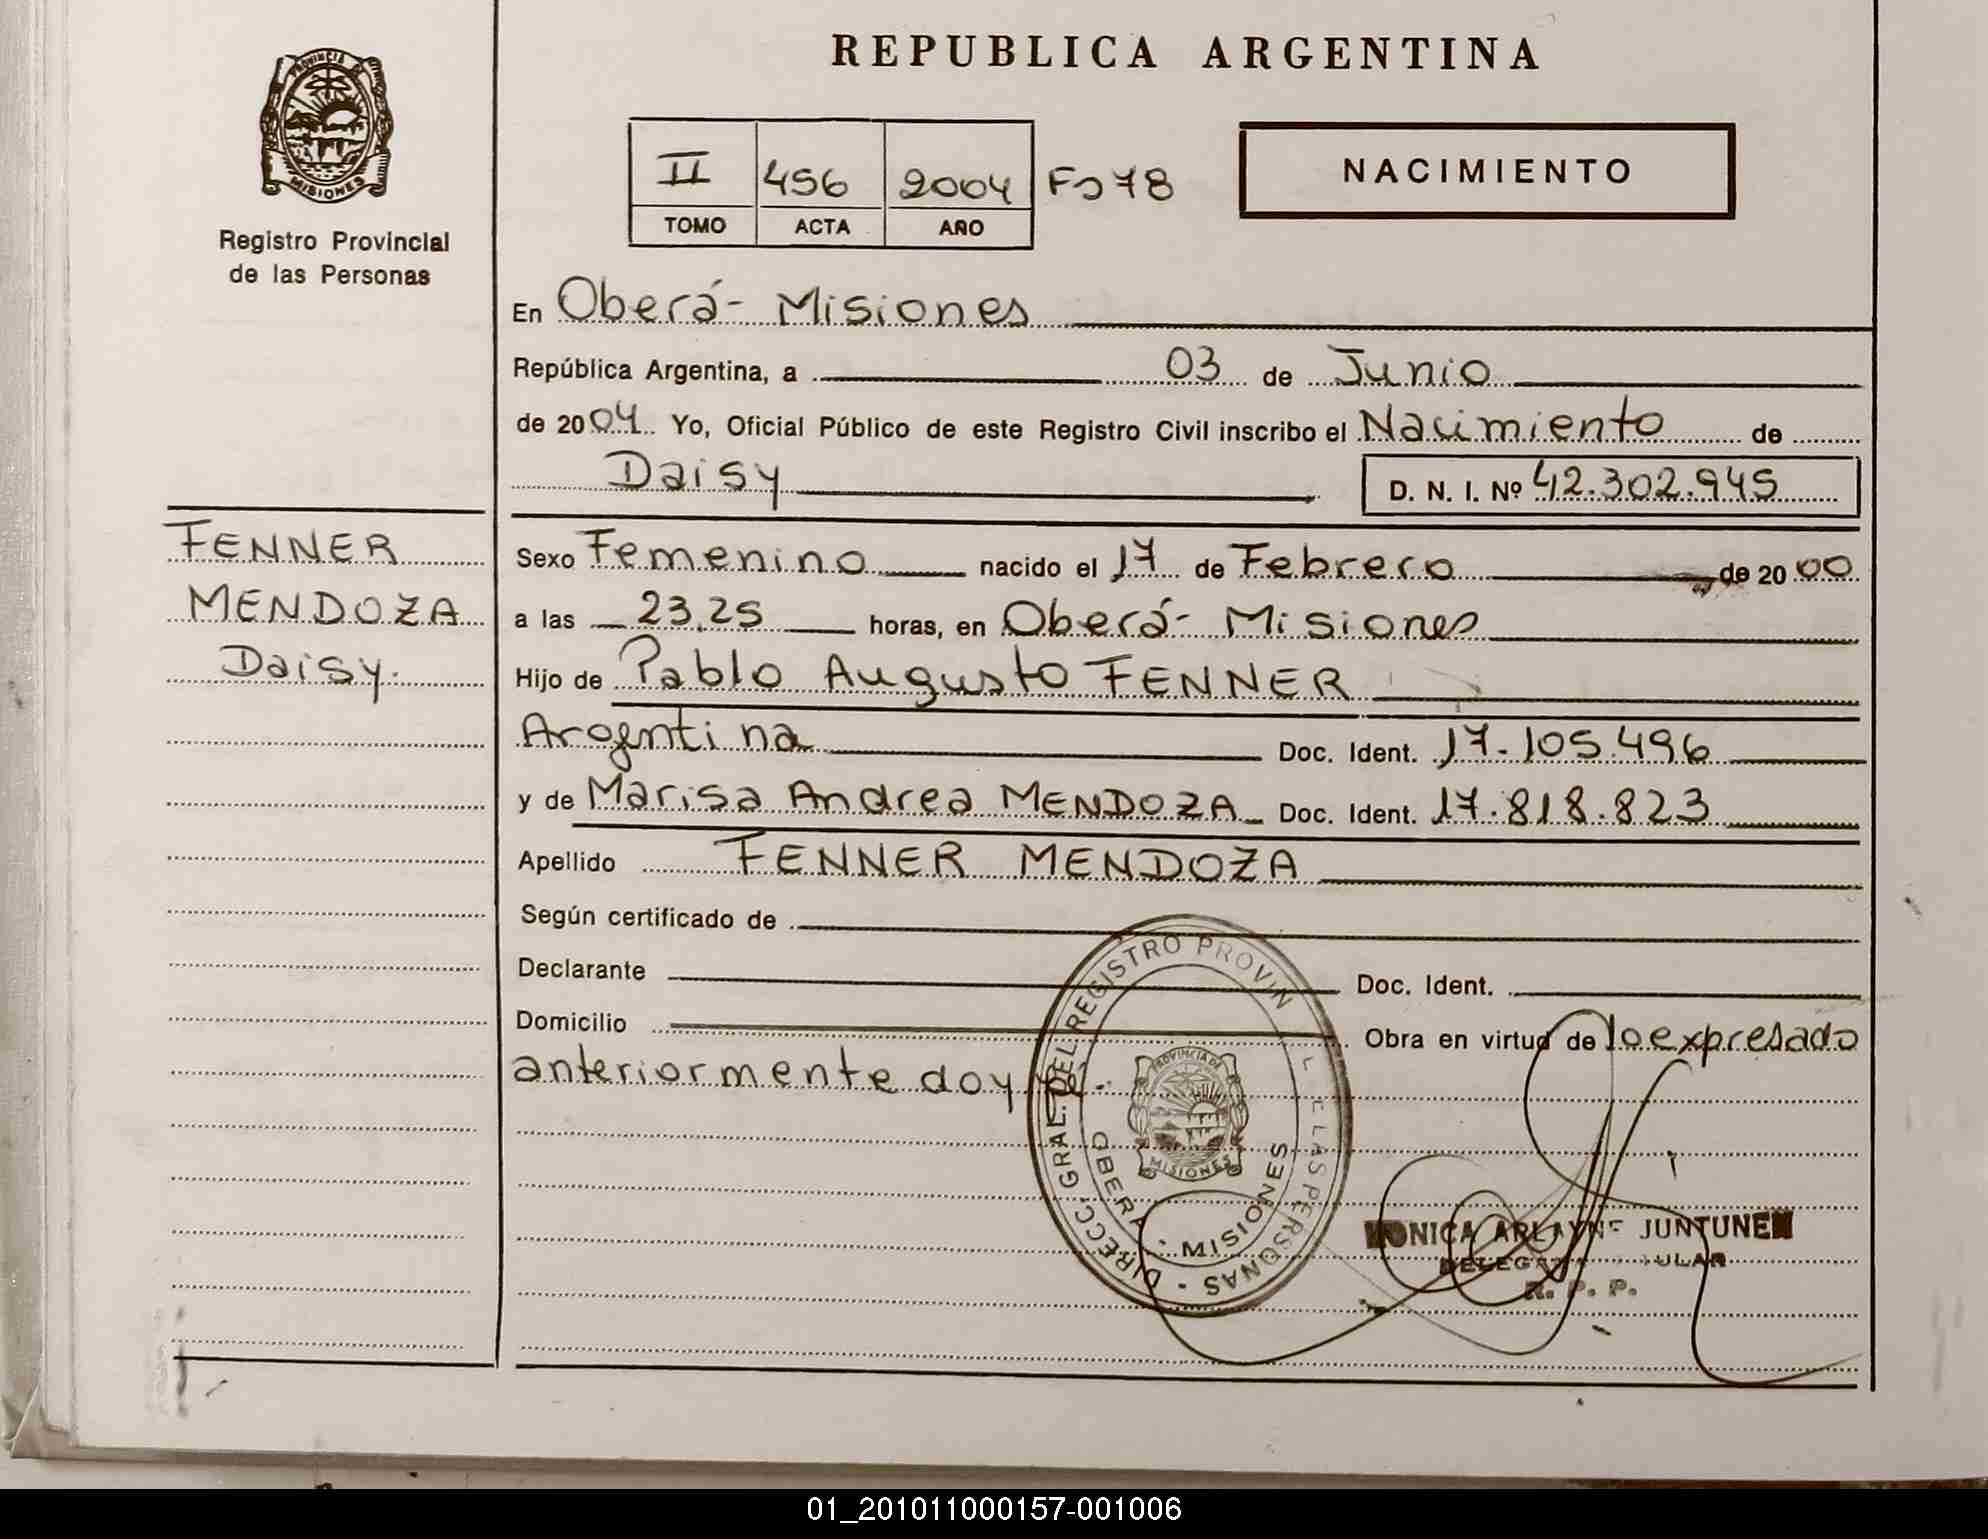 PROVINCIA DE
MISIONES
Registro Provincial
de las Personas
REPUBLICA ARGENTINA
II 456 2004 Fº 78
TOMO ACTA AÑO
NACIMIENTO
En Oberá - Misiones
República Argentina, a 03 de Junio
de 2004 Yo, Oficial Público de este Registro Civil inscribo el Nacimiento de
Daisy D. N. I. Nº 42.302.945
FENNER
MENDOZA
Daisy.
Sexo Femenino nacido el 17 de Febrero de 20 00
a las 23.25 horas, en Oberá - Misiones
Hijo de Pablo Augusto FENNER
Argentina Doc. Ident. 17.105.496
y de Marisa Andrea MENDOZA Doc. Ident. 17.818.823
Apellido FENNER MENDOZA
Según certificado de
Declarante Doc. Ident.
Domicilio Obra en virtud de lo expresado
anteriormente doy fé.-
DIRECC. GRAL. DEL REGISTRO PROVIN LAS PERSONAS -
OBERA - MISIONES
PROVINCIA DE
MISIONES
JUNTUNEN
R. P. P.
01_201011000157-001006